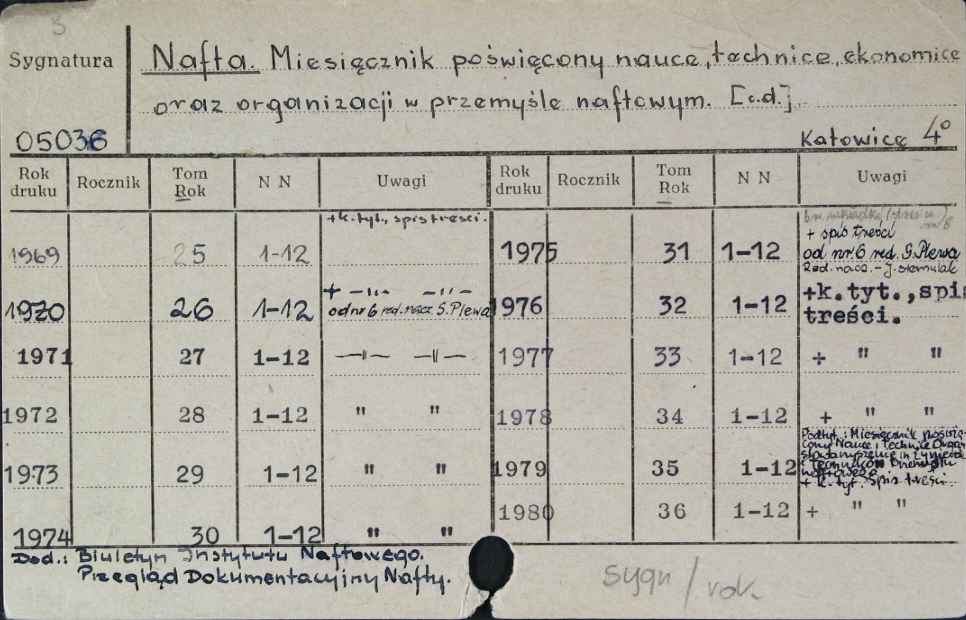 3
Sygnatura
Nafta. Miesięcznik poświęcony nauce, technice, ekonomice
oraz organizacji w przemyśle naftowym. [c.d.]
05036
Katowice 4°
Rok druku Rocznik Tom Rok N N Uwagi Rok druku Rocznik Tom Rok N N Uwagi
1969 25 1-12 +k. tyt., spis treści.
1970 26 1-12 + —"— —"— od nr 6 red. nacz S. Plewa
1971 27 1-12 —"— —"—
1972 28 1-12 " "
1973 29 1-12 " "
1974 30 1-12 " "
1975 31 1-12 + spis treści od nr. 6 red. S. Plewa Red. nacz. - J.
1976 32 1-12 +k.tyt.,spis treści.
1977 33 1-12 + " "
1978 34 1-12 + " "
1979 35 1-12 Podtyt.: Miesięcznik poświęcony Nauce i Technice i Techników + k. tyt. Spis treści.
1980 36 1-12 + " "
Dod.: Biuletyn Instytutu Naftowego.
Przegląd Dokumentacyjny Nafty.
sygn / rok.